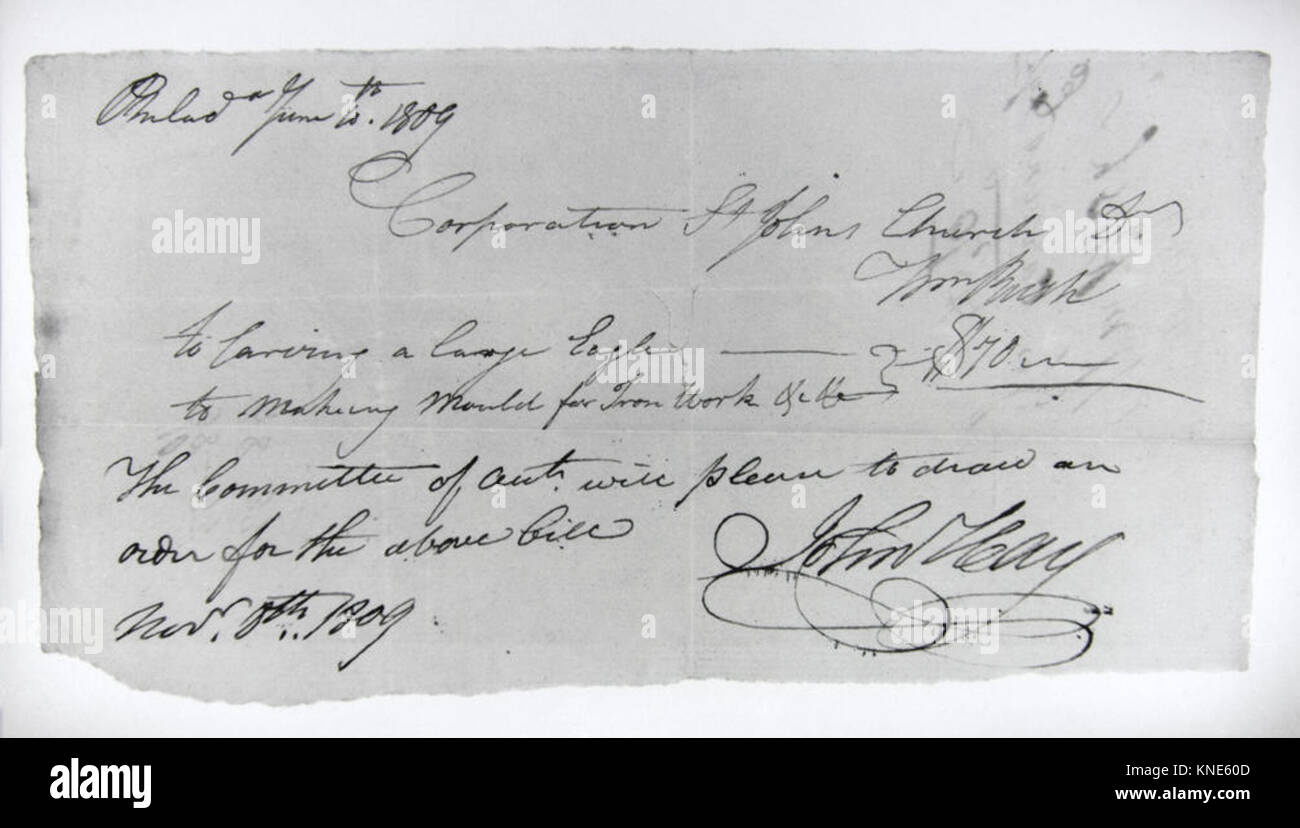 Philada June 10th. 1809
Corporation St Johns Church Dr
Wm Rush
to Carving a large Eagle
to Making Mould for Iron Work &
$70
The Committee of will please to draw an
order for the above bill
Novr. 8th. 1809
John Hay
alamy
alamy
alamy
Image ID: KNE60D
www.alamy.com